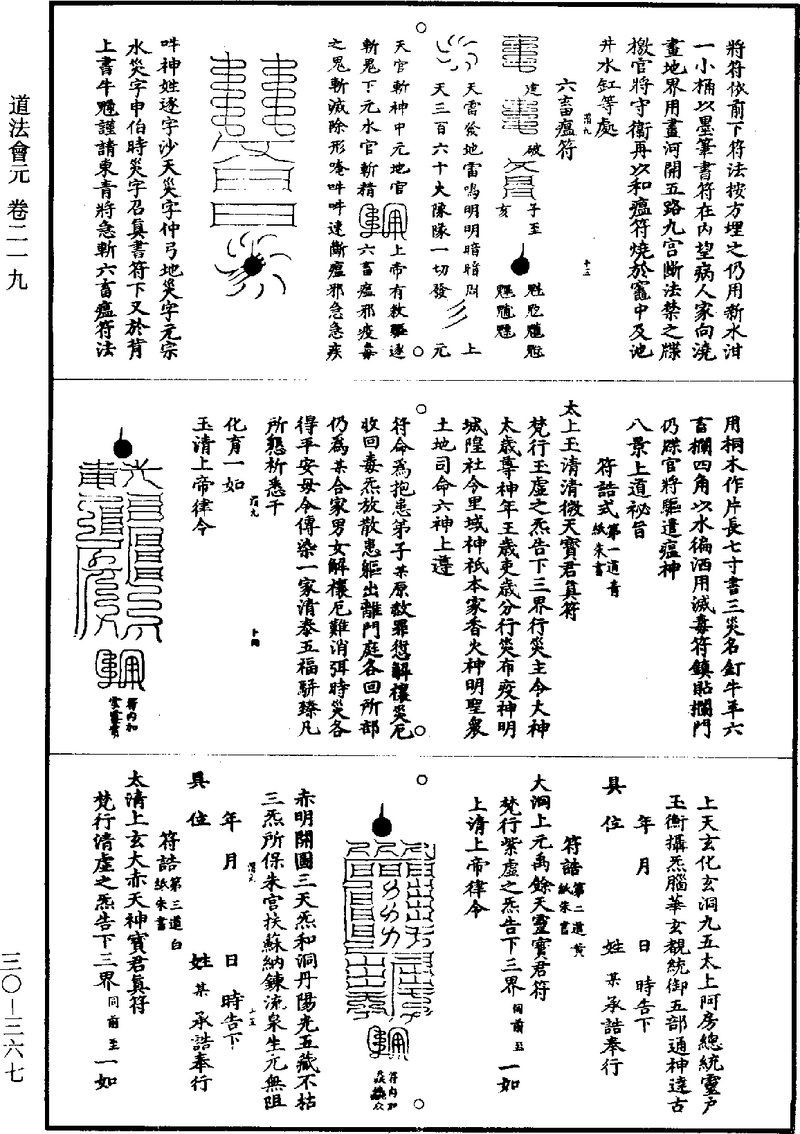 道法會元 卷二一九
三〇—三六七
將符依前下符法按方埋之仍用新水泔
一小桶以墨筆書符在內望病人家向澆
畫地界用畫河開五路九宮斷法禁之牒
檄官將守衛再以和瘟符燒於竈中及池
井水缸等處
六畜瘟符
天雷發地雷鳴明明暗暗悶 上
天三百六十大隊隊一切發 元
天官斬神中元地官 上帝有敕驅逐
斬鬼下元水官斬精 六畜瘟邪疫毒
之鬼斬滅除形唵吽吽速斷瘟邪急急疾
吽神姓逐字沙天災字仲弓地災字元宗
水災字申伯時災字召真書符下又於背
上書牛魈謹請東青將急斬六畜瘟符法
用桐木作片長七寸書三災名釘牛羊六
畜欄四角以水徧洒用滅毒符鎮貼攔門
仍牒官將驅遣瘟神
八景上道祕旨
符誥式第一道青紙朱書
太上玉清清微天寶君真符
梵行玉虛之炁告下三界行災主令大神
太歲尊神年王歲吏歲分行災布疫神明
城隍社令里域神祇本家香火神明聖衆
土地司命六神上遵
符命為抱患弟子某原赦罪愆解禳災厄
收回毒炁放散患軀出離門庭各回所部
仍為某合家男女解禳厄難消弭時災各
得平安毋令傳染一家清泰五福駢臻凡
所懇祈悉干
化育一如
玉清上帝律令
上天玄化玄洞九五太上阿房總統靈戶
玉衡攝炁腦華玄覩統御五部通神達古
年 月 日 時告下
具 位 姓 某 承誥奉行
符誥第二道黃紙朱書
大洞上元禹餘天靈寶君符
梵行紫虛之炁告下三界同前至 一如
上清上帝律令
赤明開圖三天炁和洞丹陽光五藏不枯
三炁所保朱宮扶蘇納鍊流泉生元無阻
年 月 日 時告下
具 位 姓 某 承誥奉行
符誥第三道白紙朱書
太清上玄大赤天神寶君真符
梵行清虛之炁告下三界同前至 一如